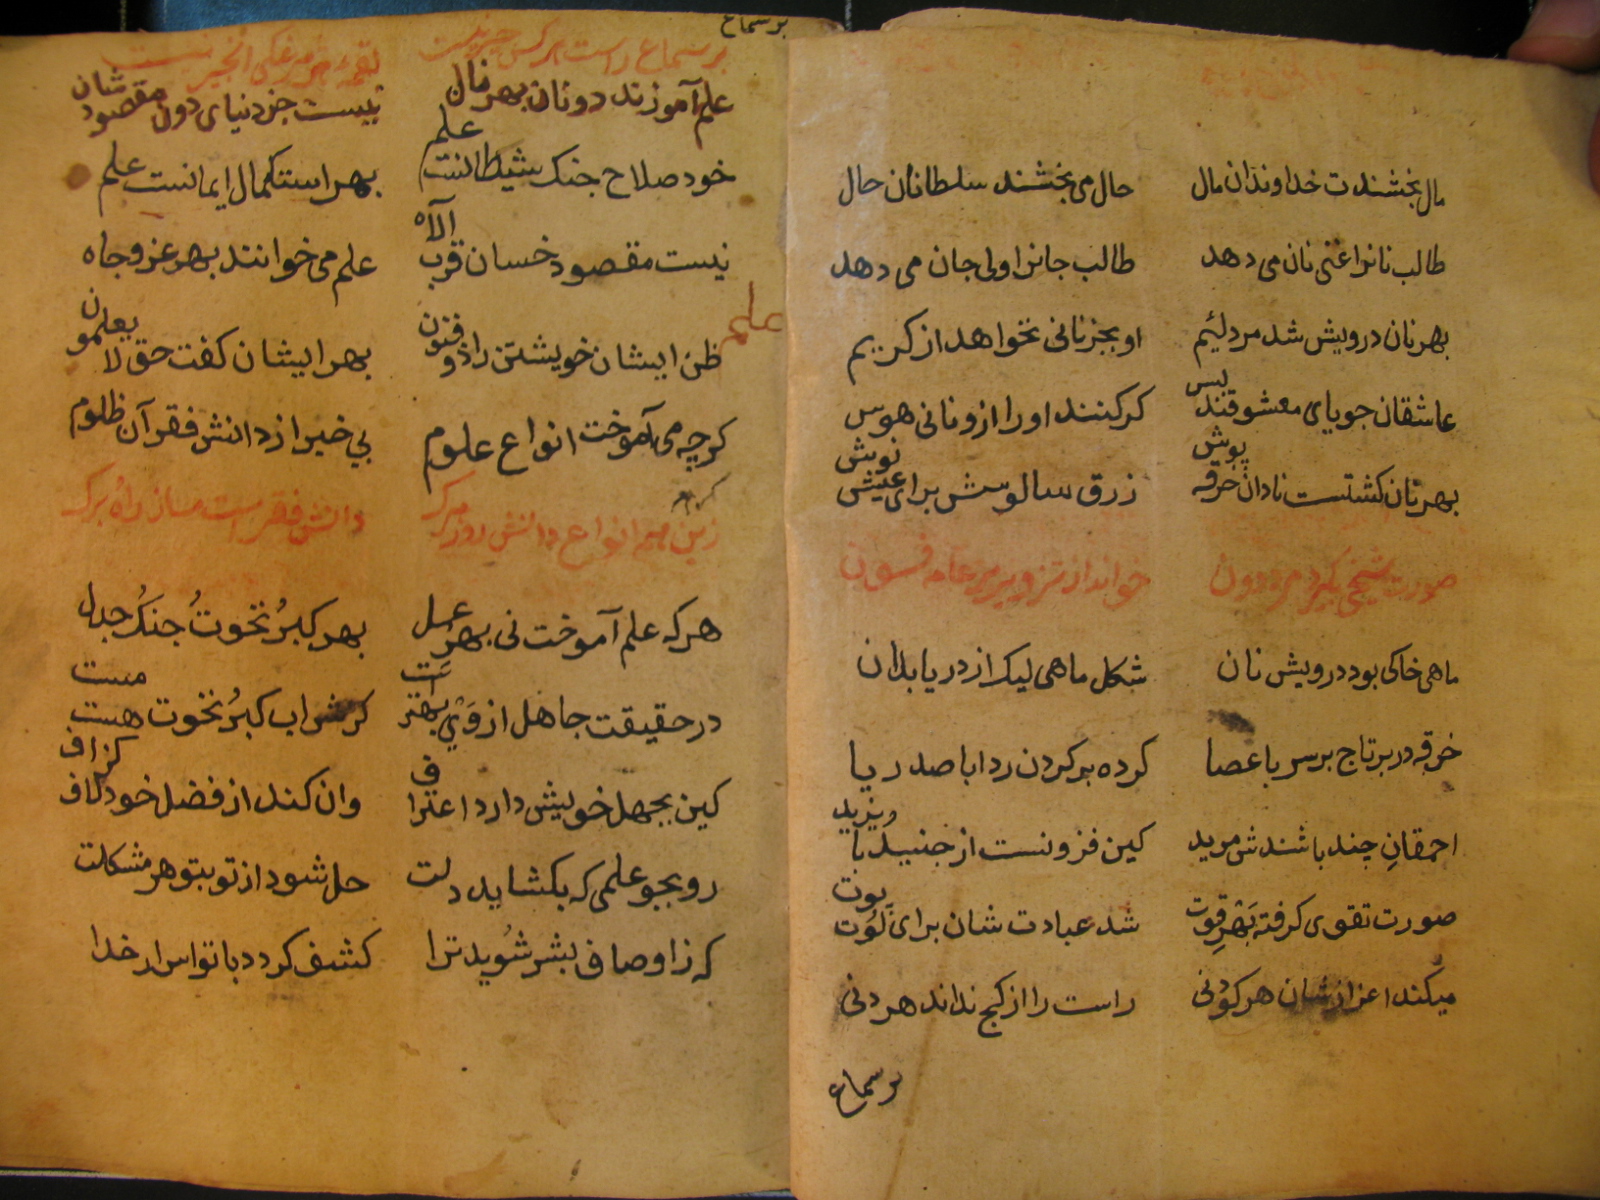 مال بخشندت خداوندان مال حال می بخشند سلطانان حال
طالب نانرا غنی نان می دهد طالب جانرا ولی جان می دهد
بهر نان درویش شد مرد لئیم او بجز نانی نخواهد از کریم
عاشقان جویای معشوقند بس کر کنند او را زو نانی هوس
بهر نان کشتست نادان خرقه پوش زرق سالوسش برای عیش نوش
صورت شیخی بکیرد مرد دون خواند از تزویر بر عامه فسون
ماهی خاکی بود درویش نان شکل ماهی لیک از دریا بدان
خرقه در بر تاج بر سر با عصا کرده بر کردن ردا با صد ریا
احمقان چند باشندش مرید کین فزونست از جنید با ویزید
صورت تقوی کرفته بهر قوت شد عبادت شان برای لوت پوت
میکند اعزازشان هر کودنی راست را از کج نداند هر دنی
بر سماع
بر سماع
بر سماع راست هر کس چیر نیست لقمۀ هر مرغکی انجیر نیست
علم آموزند دونان بهر نان نیست جز دنیای دون مقصودشان
خود صلاح جنک شیطانست علم بهر استکمال ایمانست علم
نیست مقصود خسان قرب آلاه علم می خوانند بهر عز و جاه
علم
ظن ایشان خویشتن را ذو فنون بهر ایشان کفت حق لا یعلمون
کرچه می آموخت انواع علوم بی خبر از دانش فقر آن ظلوم
زین همه انواع دانش روز مرک دانش فقر است ساز راه برک
هر که علم آموخت نی بهر عمل بهر کبر نخوت جنک جدل
در حقیقت جاهل از وی بهتر است کر شراب کبر نخوت هست مست
کین بجهل خویش دارد اعتراف وان کند از فضل خود لاف کزاف
رو بجو علمی که بکشاید دلت حل شود از تو بتو هر مشکلت
که ز اوصاف بشر شوید ترا کشف کردد با تو اسرار خدا